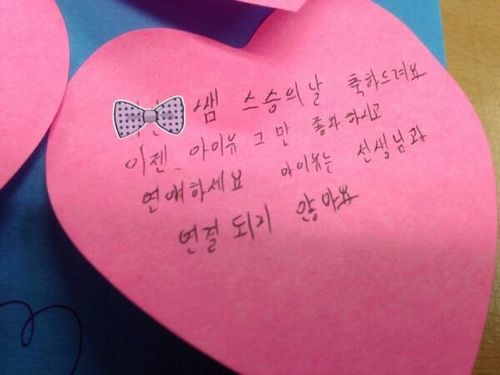 쌤 스승의날 축하드려요
이젠 아이유 그만 좋아하시고
연애하세요 아이유는 선생님과
연결 되지 않아요